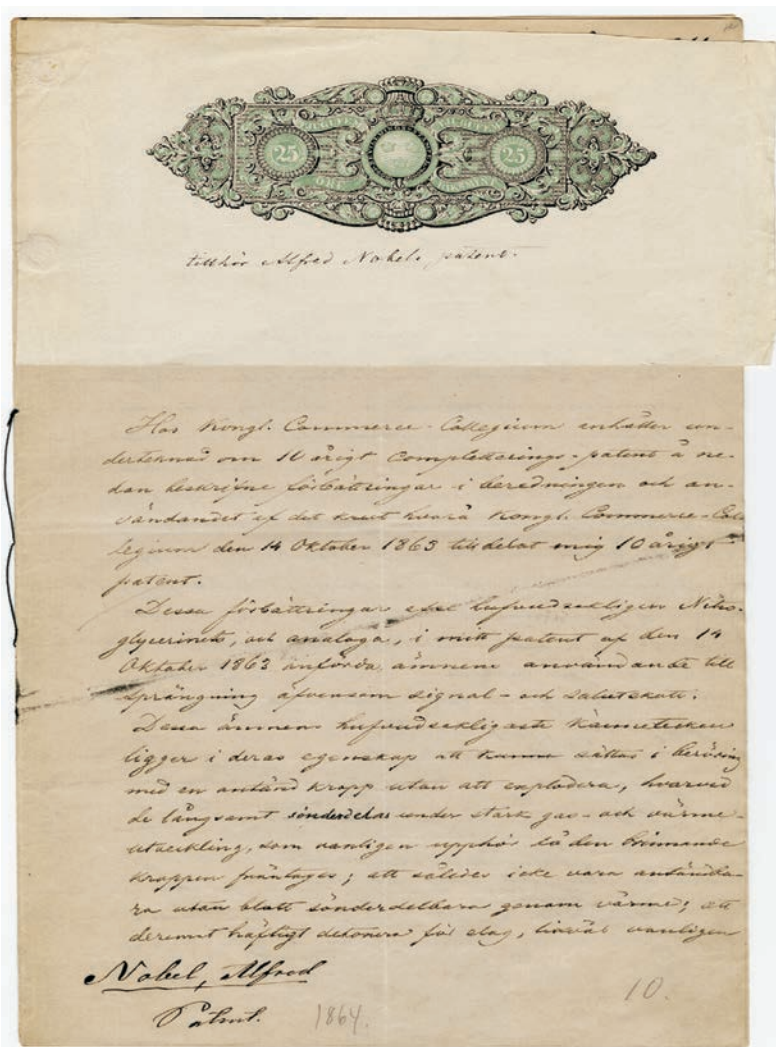 25
25
ÖRE
tillhör Alfred Nobels patent.
Hos Kongl. Commerce-Collegium anhåller un-
dertecknad om 10 årigt completterings-patent å ne-
dan beskrifne förbättringar i beredningen och an-
vändandet af det krut hvarå Kongl. Commerce-Col-
legium den 14 Oktober 1863 tilldelat mig 10 årigt
patent.
Dessa förbättringar afse hufvudsakligen Nitro-
glycerinets, och analoga, i mitt patent af den 14
Oktober 1863 anförda ämnens användande till
sprängning äfvensom signal- och salutskott.
Dessa ämnens hufvudsakligaste kännetecken
ligger i deras egenskap att kunna sättas i beröring
med en antänd kropp utan att explodera, hvarvid
de långsamt sönderdelas under stark gas- och värme-
utveckling, som vanligen upphör då den brinnande
kroppen fråntages; att således icke vara antändba-
ra utan blott sönderdelbara genom värme; att
deremot häftigt detonera för slag, likväl vanligen
Nobel, Alfred
Patent.
1864.
10.